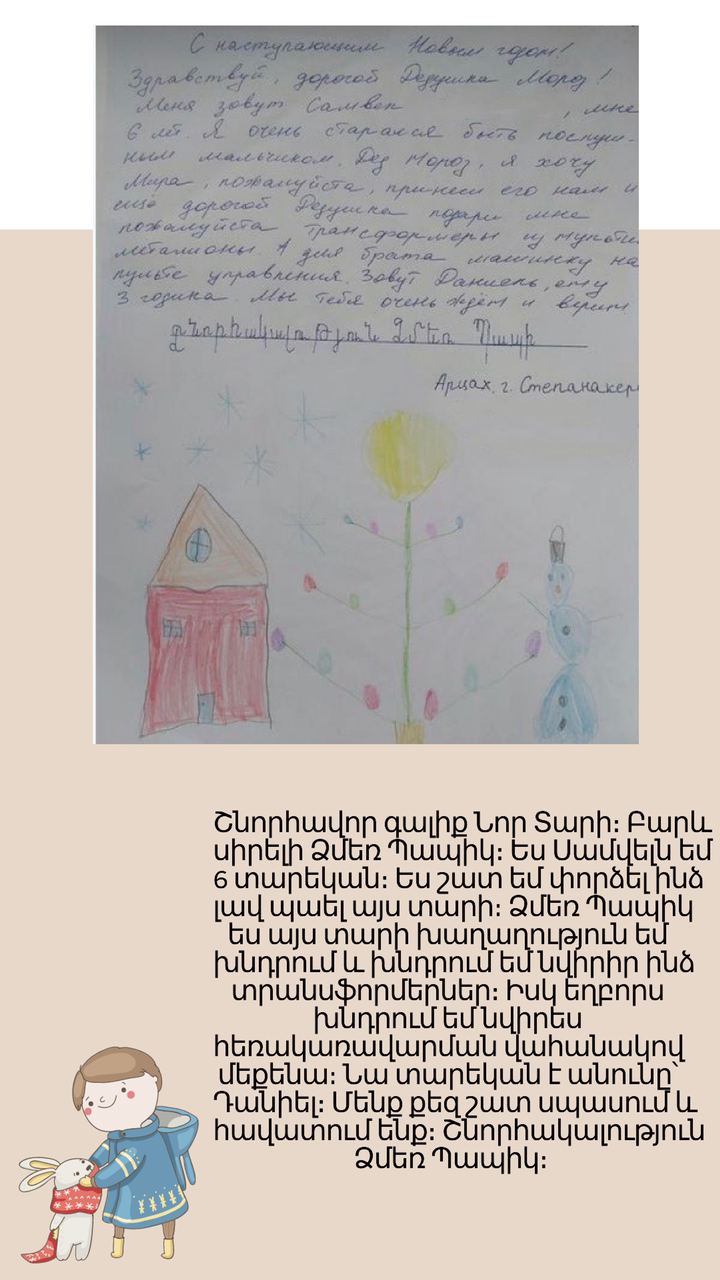 С наступающим Новым годом!
Здравствуй, дорогой Дедушка Мороз!
Меня зовут Самвел , мне
6 лет. Я очень старался быть послуш-
ным мальчиком. Дед Мороз, я хочу
Мира, пожалуйста, принеси его нам и
ещё дорогой Дедушка подари мне
пожалуйста трансформеры из мульти
металионы. А для брата машинку на
пульте управления. Зовут Даниель, ему
3 годика. Мы тебя очень ждём и верим
Շնորհակալություն Ձմեռ Պապի
Арцах, г. Степанакер
Շնորհավոր գալիք Նոր Տարի։ Բարև
սիրելի Ձմեռ Պապիկ։ Ես Սամվելն եմ
6 տարեկան։ Ես շատ եմ փորձել ինձ
լավ պաել այս տարի։ Ձմեռ Պապիկ
ես այս տարի խաղաղություն եմ
խնդրում և խնդրում եմ նվիրիր ինձ
տրանսֆորմերներ։ Իսկ եղբորս
խնդրում եմ նվիրես
հեռակառավարման վահանակով
մեքենա։ Նա տարեկան է անունը՝
Դանիել։ Մենք քեզ շատ սպասում և
հավատում ենք։ Շնորհակալություն
Ձմեռ Պապիկ։